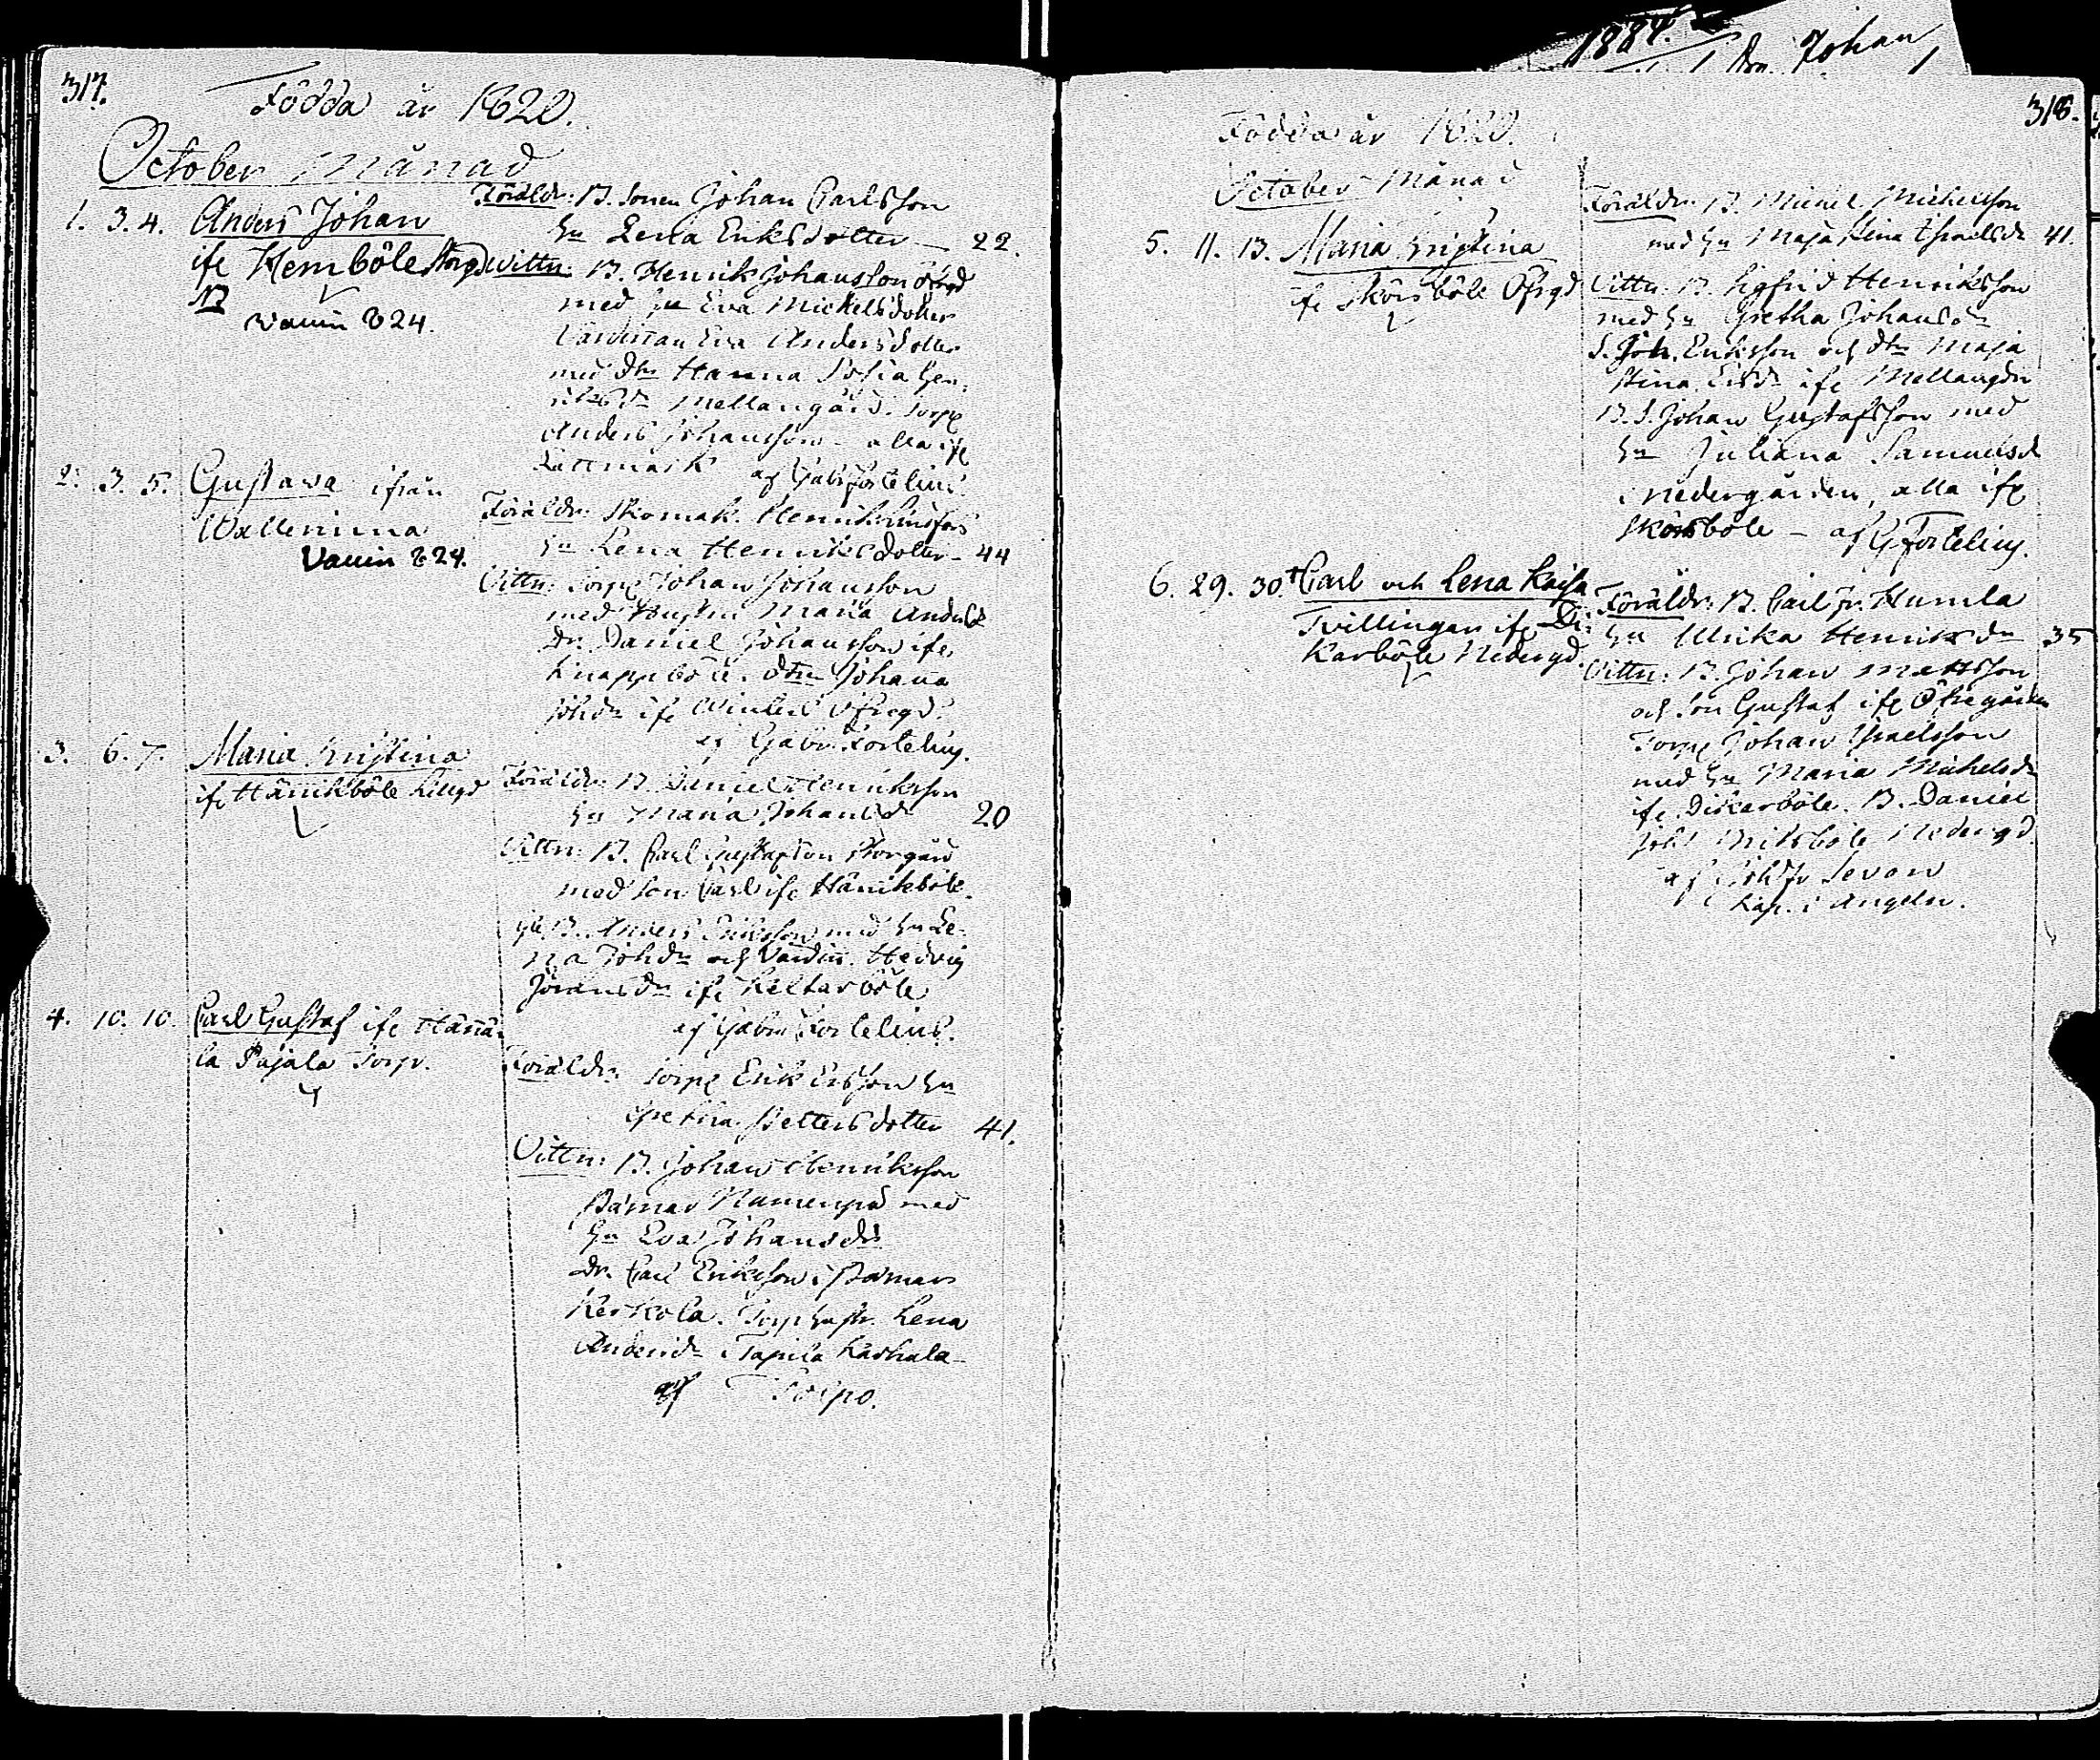 317.
Födda år 1820.
October Månad
1. 3. 4. Anders Johan
ifr Kemböle Storgd
vaccin 824.
Föräldr: B. Sonen Johan Carlsson
hu Lena Eriksdotter — 22.
Vittn: B. Henrik Johansson
med hu Eva Mickelsdotter
Värdinnan Eva Andersdotter
med dtr Hanna Sofia Hen-
riksdr Mellangård. Torp
Anders Johansson - alla ifr
Lattmark af Gabr Fortelius
2. 3. 5. Gustava ifrån
Walleninna
Vaccin 824.
Föräldr: Skomak. Henrik
hu Lena Henriksdotter - 44
Vittn: Torp Johan Johansson
med hustru Maria Andersd
Dr. Daniel Johansson ifr
Knappböle. dtr Johanna
Johdr ifr Winkels Öfregd.
af Gabr. Fortelius.
3. 6. 7. Maria Kristina
ifr Hänikböle Lillgd
Föräldr: B. Daniel Henriksson
hu Maria Johansdr 20
Vittn: B. Carl Gustafson Storgård
med Son Carl ifr Hänikböle.
B. Anders Eriksson med hu Le-
na Johdr och Värdin. Hedvig
Jöransdr ifr Keltarböle
af Gabr Fortelius.
4. 10. 10. Carl Gustaf ifr Hännä-
la Pajala Torp.
Föräldr: Torp Erik Ersson hu
Gretha Pettersdotter 41.
Vittn: B. Johan Henriksson
Pämar Numenpä med
hu Eva Johansdr
Dr. Carl Eriksson i Pämar
Kerkola. Torp hustr. Lena
Andersdr i Tapila Karhala
af Toipo.
1884.
Johan
318.
Födda år 1820.
October Månad
5. 11. 13. Maria Kristina
ifr Skörsböle Öfrgd
Föräldr: B. Michel Michelsson
med hu Maja Stina Israelsdr 41.
Vittn: B. Sigfrid Henriksson
med hu Gretha Johansdr
S. Joh. Eriksson och dtr Maja
Stina Ersdr ifr Mellangdn
B. S. Johan Gustafsson med
hu Juliana Samuelsd
i nedergården, alla ifr
Skörsböle — af G Fortelius.
6. 29. 30. Carl och Lena Kaisa
Tvillingar ifr Di-
karböle Nedergd.
Föräldr: B. Carl Jr. Humla
hu Ulrika Henriksdr 35
Vittn: B. Johan Mattsson
och Son Gustaf ifr Öfregården
Torp Johan Israelsson
med hu Maria Michelsdr
ifr Dikarböle. B. Daniel
Nedergd.
af Levon
Kap. i Angeln.